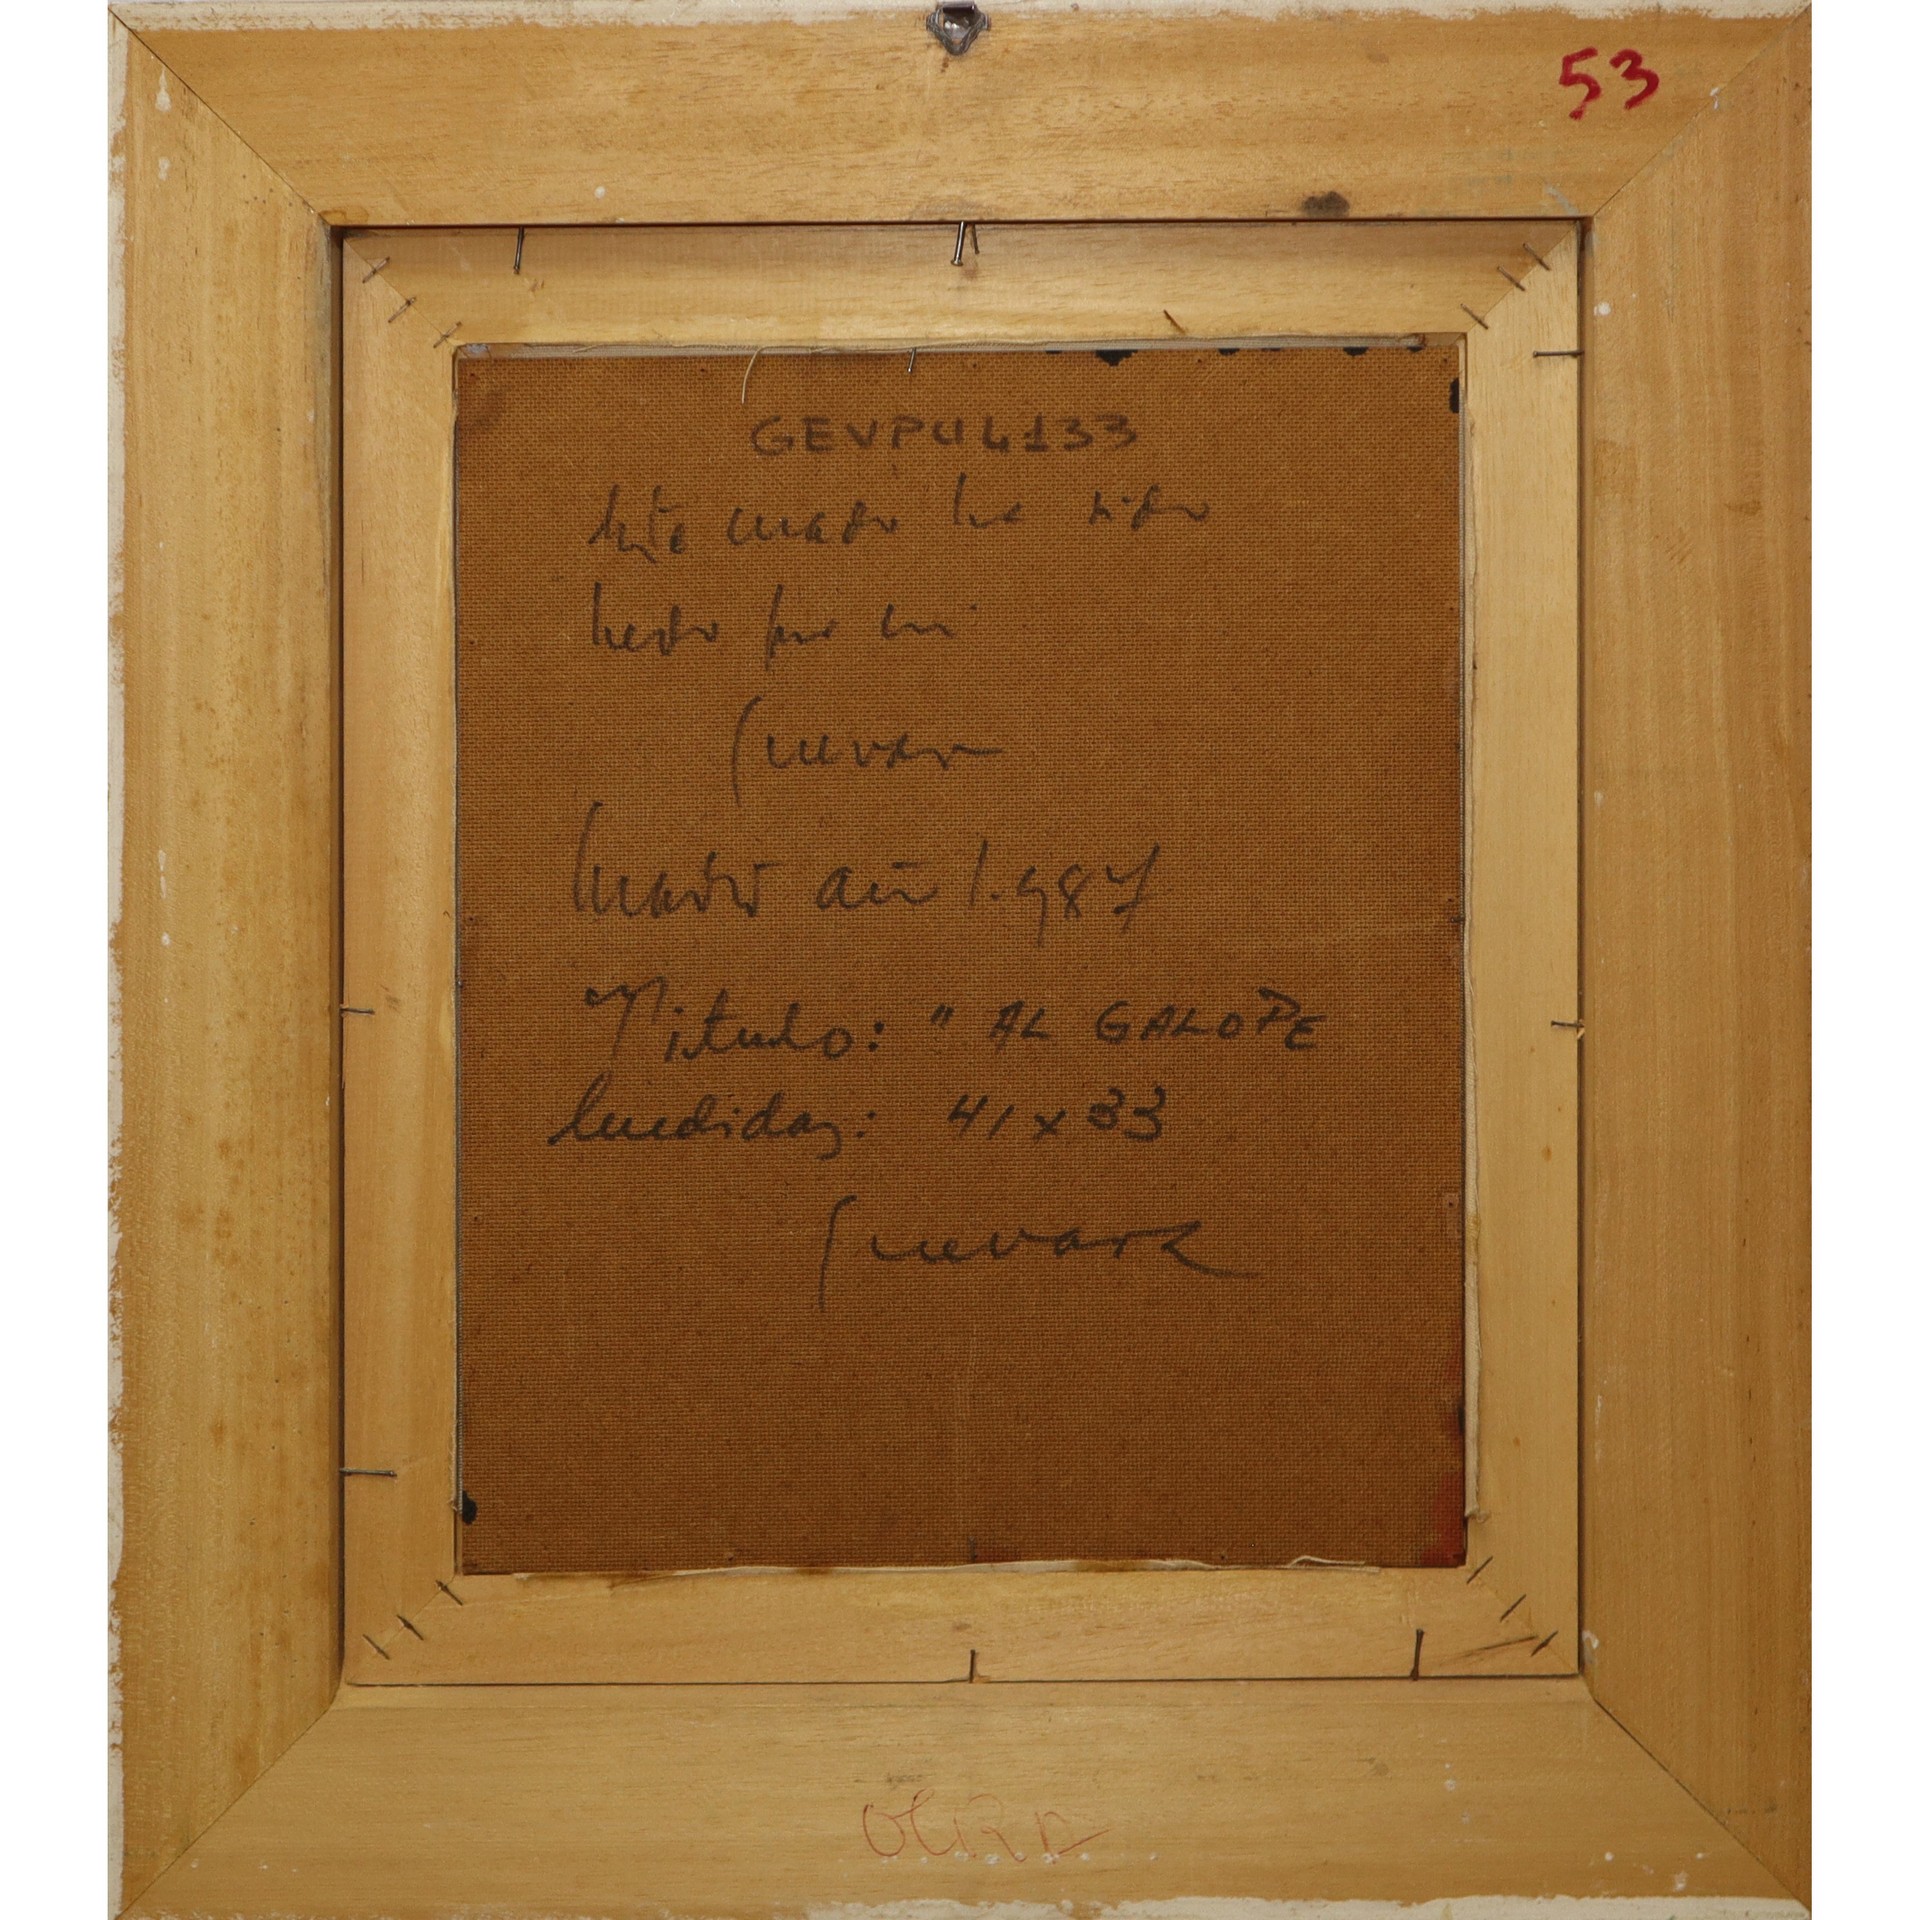 53
GEVPU4133
Este cuadro ha sido
hecho por mi
Guevara
Madrid año 1.987
Titulo: " AL GALOPE
Medidas: 41 x 33
Guevara